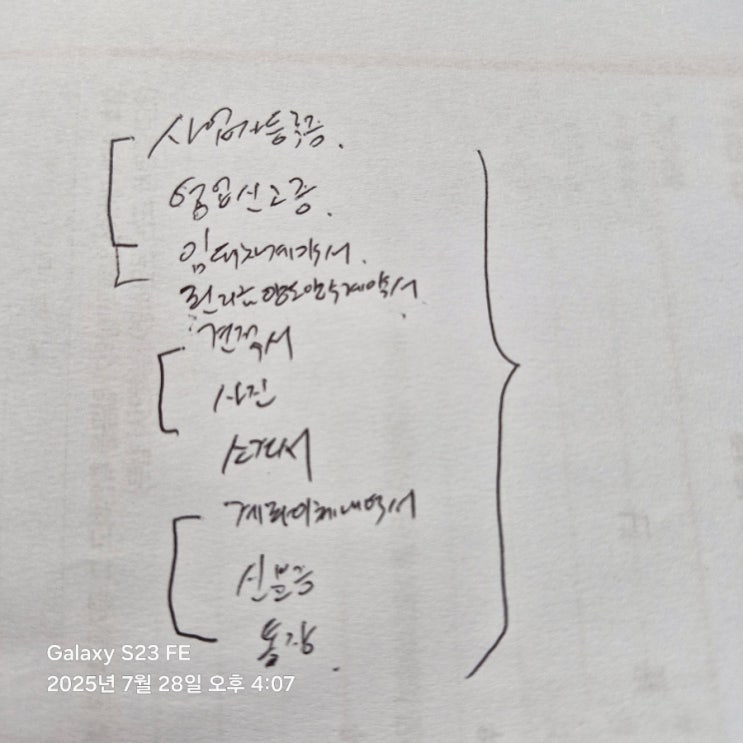 사업자등록증.
영업신고증.
임대차계약서.
권리금 양도양수계약서.
견적서
사진
계좌이체내역서
신분증
통장.
Galaxy S23 FE
2025년 7월 28일 오후 4:07